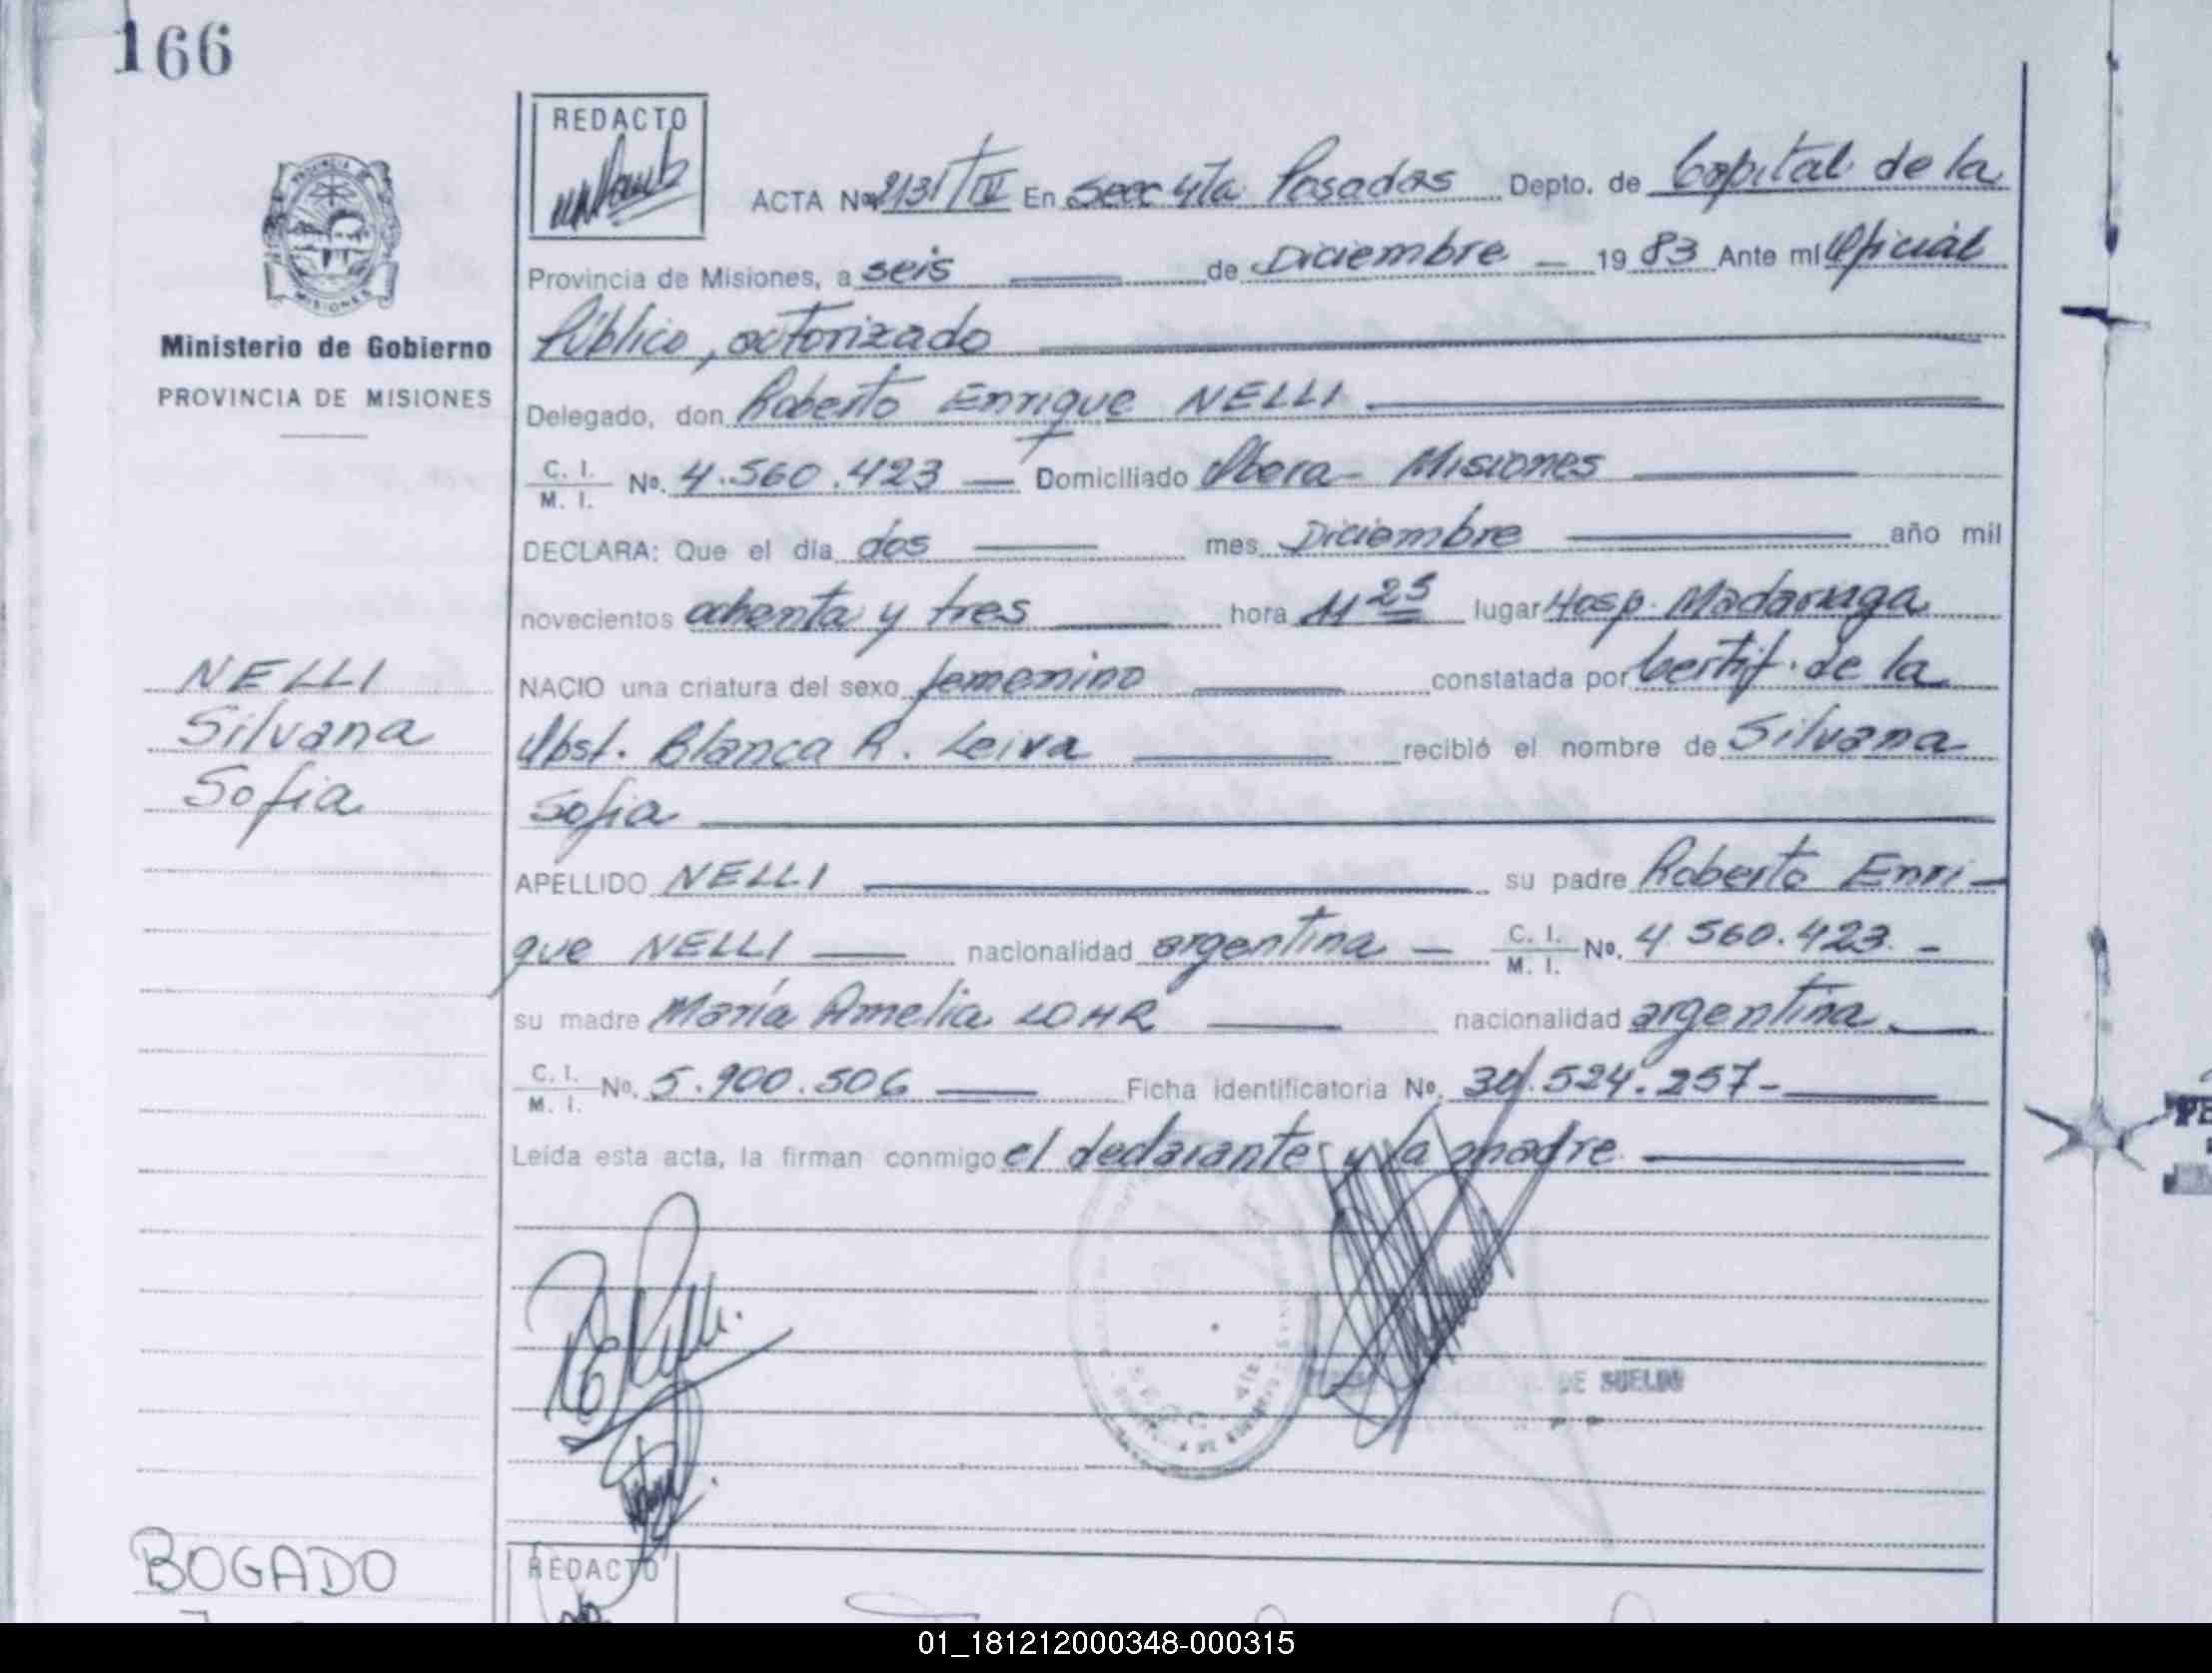 166
REDACTO
PROVINCIA DE
MISIONES
Ministerio de Gobierno
PROVINCIA DE MISIONES
ACTA No. 2131/IV En Secc 4ta Posadas Depto. de Capital de la
Provincia de Misiones, a seis de Diciembre 1983 Ante mi Oficial
Público, autorizado
Delegado, don Roberto Enrique NELLI
C. I.
M. I. No. 4.560.423 Domiciliado Obera - Misiones
DECLARA: Que el día dos mes Diciembre año mil
novecientos ochenta y tres hora 11 25 lugar Hosp. Madariaga
NACIO una criatura del sexo femenino constatada por Certif. de la
Obst. Blanca R. Leiva recibió el nombre de Silvana
Sofia
APELLIDO NELLI su padre Roberto Enri-
que NELLI nacionalidad argentina C. I.
M. I. No. 4.560.423.-
su madre María Amelia LOHR nacionalidad argentina
C. I.
M. I. No. 5.900.506 Ficha identificatoria No. 30.524.257-
Leída esta acta, la firman conmigo el declarante y la madre.
NELLI
Silvana
Sofia
DE SUELDO
BOGADO
REDACTO
01_181212000348-000315